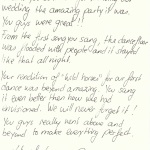 wedding the amazing party it was.
You guys were great!!
From the first song you sang, the dancefloor
was loaded with people and it stayed
like that all night.
Your rendition of "Wild horses" for our first
dance was beyond amazing. You sang
it even better than how we had
envisioned. We will never forget it!
You guys really went above and
beyond to make everything perfect.